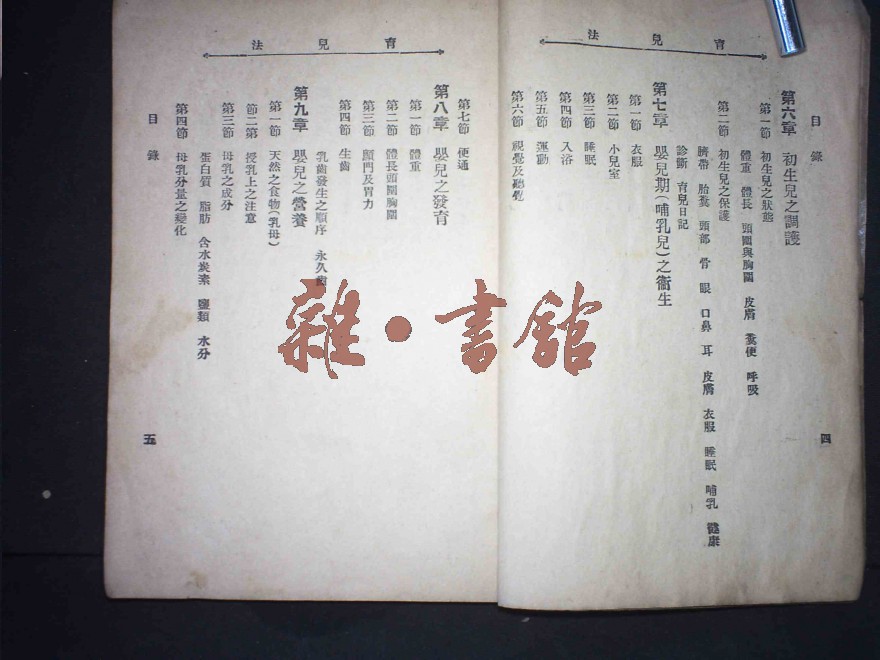 育兒法
目錄
第六章 初生兒之調護
第一節 初生兒之狀態
體重 體長 頭圍與胸圍 皮膚 糞便 呼吸
第二節 初生兒之保護
臍帶 胎糞 頭部 骨 眼 口鼻 耳 皮膚 衣服 睡眠 哺乳 健康
診斷 育兒日記
第七章 嬰兒期(哺乳兒)之衞生
第一節 衣服
第二節 小兒室
第三節 睡眠
第四節 入浴
第五節 運動
第六節 視覺及聽覺
四
育兒法
第七節 便通
第八章 嬰兒之發育
第一節 體重
第二節 體長頭圍胸圍
第三節 顖門及胃力
第四節 生齒
乳齒發生之順序 永久齒
第九章 嬰兒之營養
第一節 天然之食物(乳母)
節二第 授乳上之注意
第三節 母乳之成分
蛋白質 脂肪 含水炭素 鹽類 水分
第四節 母乳分量之變化
目錄
五
雜·書館